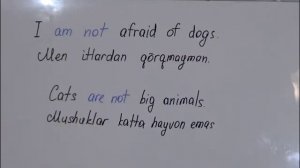 I am not afraid of dogs.
Men itlardan qo'rqmayman.
Cats are not big animals.
Mushuklar katta hayvon emas